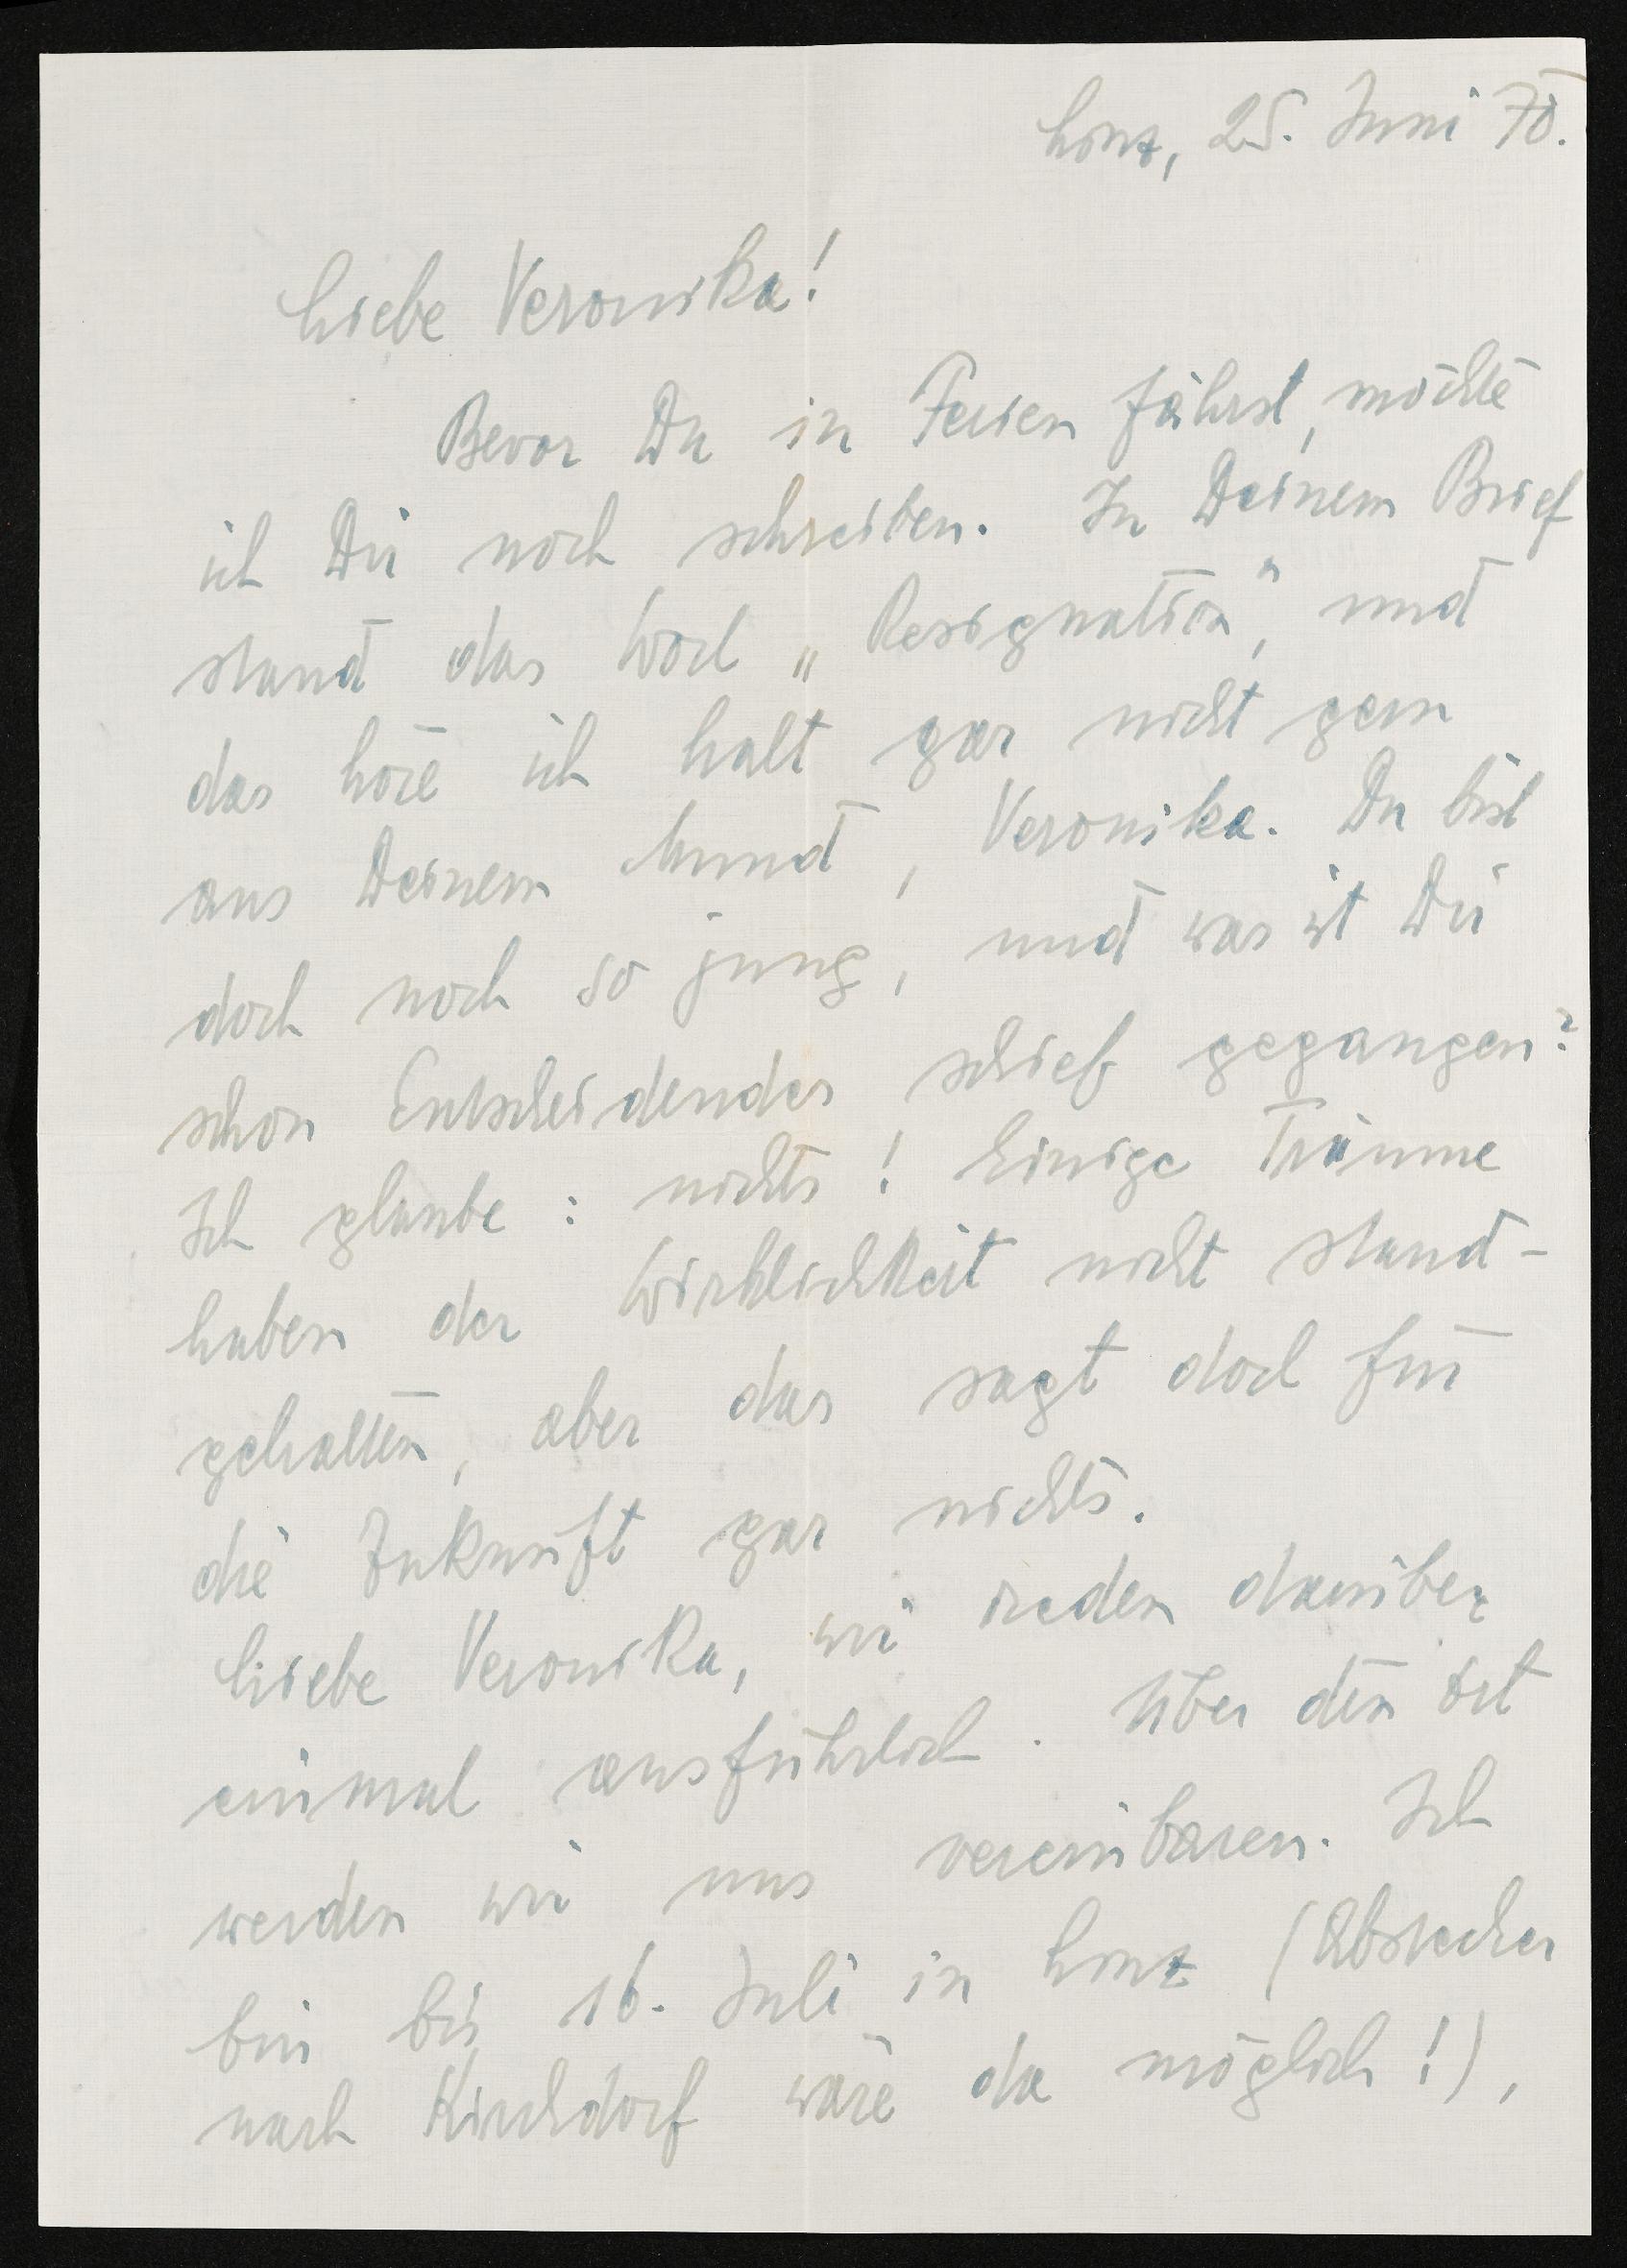 Linz, 25. Juni 70.
Liebe Veronika!
Bevor Du in Ferien fährst, möchte
ich Dir noch schreiben. In Deinem Brief
stand das Wort „Resignation“, und
das höre ich halt gar nicht gern
aus Deinem Mund, Veronika. Du bist
doch noch so jung, und was ist Dir
schon Entscheidendes schief gegangen?
Ich glaube: nichts! Einige Träume
haben der Wirklichkeit nicht stand-
gehalten, aber das sagt doch für
die Zukunft gar nichts.
Liebe Veronika, wir reden darüber
einmal ausführlich. Über den Ort
werden wir uns vereinbaren. Ich
bin bis 16. Juli in Linz (Abstecher
nach Kirchdorf wäre da möglich!),